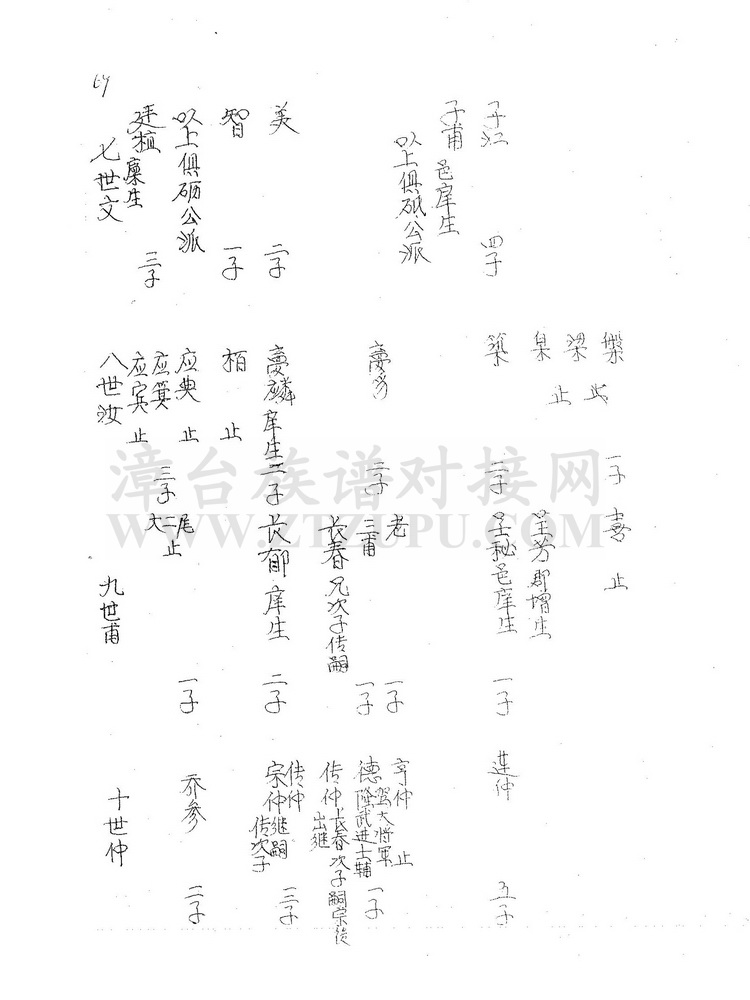 子江 四子
子甫 邑庠生
以上俱砥公派
美 二子
智 一子
以上俱砺公派
廷植 廪生 三子
七世文
槃 一子
梁 止
臬 止
築 二子
栢 止
应典 止
应箕 三子
应宾 止
八世汝
喜 止
呈芳郡增生
呈秘邑庠生 一子
老 一子
三甫 一子
长春兄次子传嗣
梦麟庠生二子
长郁庠生 二子
尾 一子
二止
大
九世甫
莲仲 五子
亨仲 止
德隆武进士辅
驾大将軍 一子
传仲长春次子嗣宗传
出继
传仲
宗仲继嗣 三子
传次子
乔参 二子
十世仲
漳台族谱对接网
WWW.ZTZUPU.COM